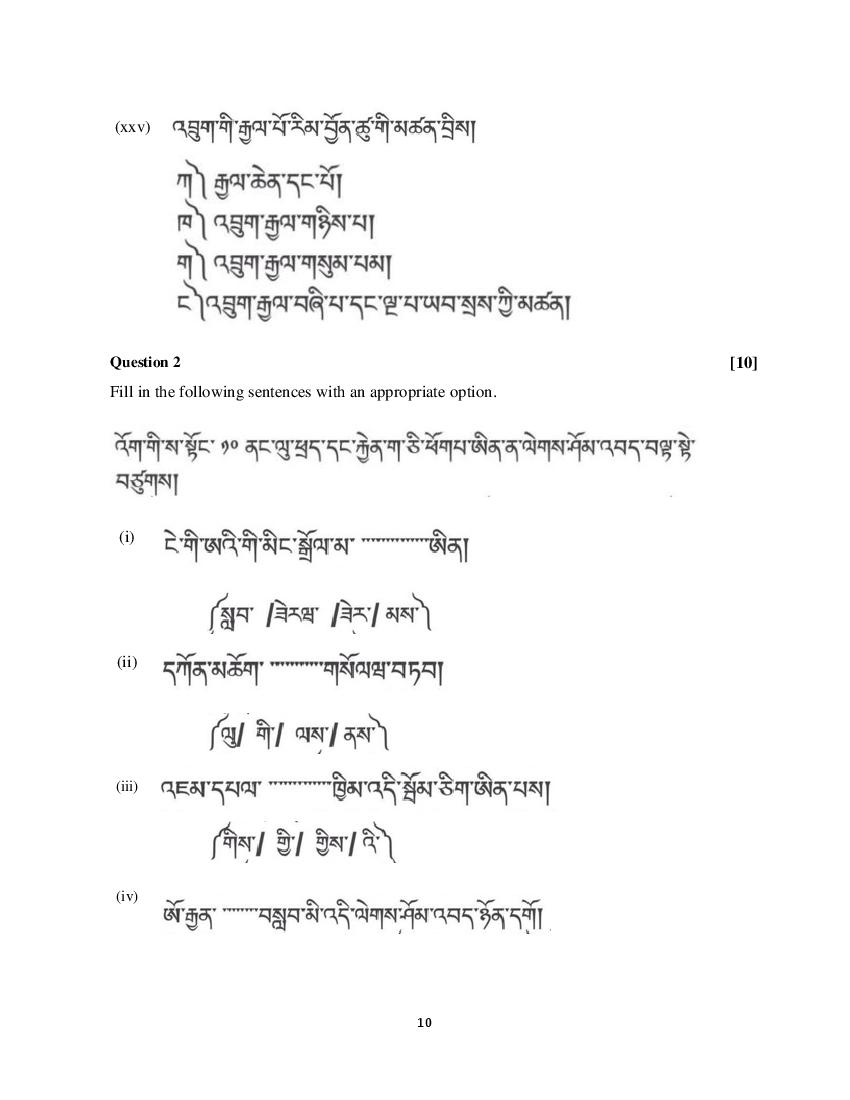 (xxv) འབྲུག་གི་རྒྱལ་པོ་རིམ་བྱོན་ཚུ་གི་མཚན་བྲིས།
ཀ༽ རྒྱལ་ཆེན་དང་པོ།
ཁ༽ འབྲུག་རྒྱལ་གཉིས་པ།
ག༽ འབྲུག་རྒྱལ་གསུམ་པམ།
ང༽འབྲུག་རྒྱལ་བཞི་པ་དང་ལྔ་པ་ཡབ་སྲས་ཀྱི་མཚན།
Question 2 [10]
Fill in the following sentences with an appropriate option.
འོག་གི་ས་སྟོང་ ༡༠ ནང་ལུ་ཕྲད་དང་རྐྱེན་ག་ཅི་ཕོགཔ་ཨིན་ན་ལེགས་ཤོམ་འབད་བལྟ་སྟེ་
བཙུགས།
(i) ངེ་གི་ཨའི་གི་མིང་སྒྲོལ་མ་ ............ཨིན།
༼སླབ་ /ཟེརཝ་ /ཟེར་/ མས་༽
(ii) དཀོན་མཆོག་ ............གསོལཝ་བཏབ།
༼ལུ/ གི་/ ལས་/ ནས་༽
(iii) འཇམ་དཔལ་ ............ཁྱིམ་འདི་སྦོམ་ཅིག་ཨིན་པས།
༼གིས་/ གྱི་/ གྱིས་/ འི་༽
(iv) ཨོ་རྒྱན་ ........བསླབ་མི་འདི་ལེགས་ཤོམ་འབད་ཉོན་དགོ།
10